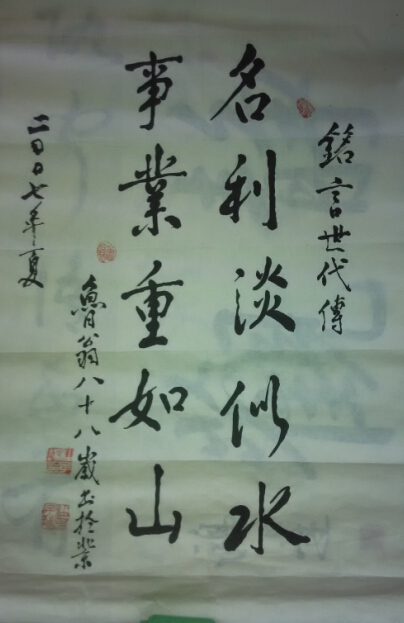 銘言世代傳
名利淡似水
事業重如山
魯翁八十八歲书於
二〇〇七年夏